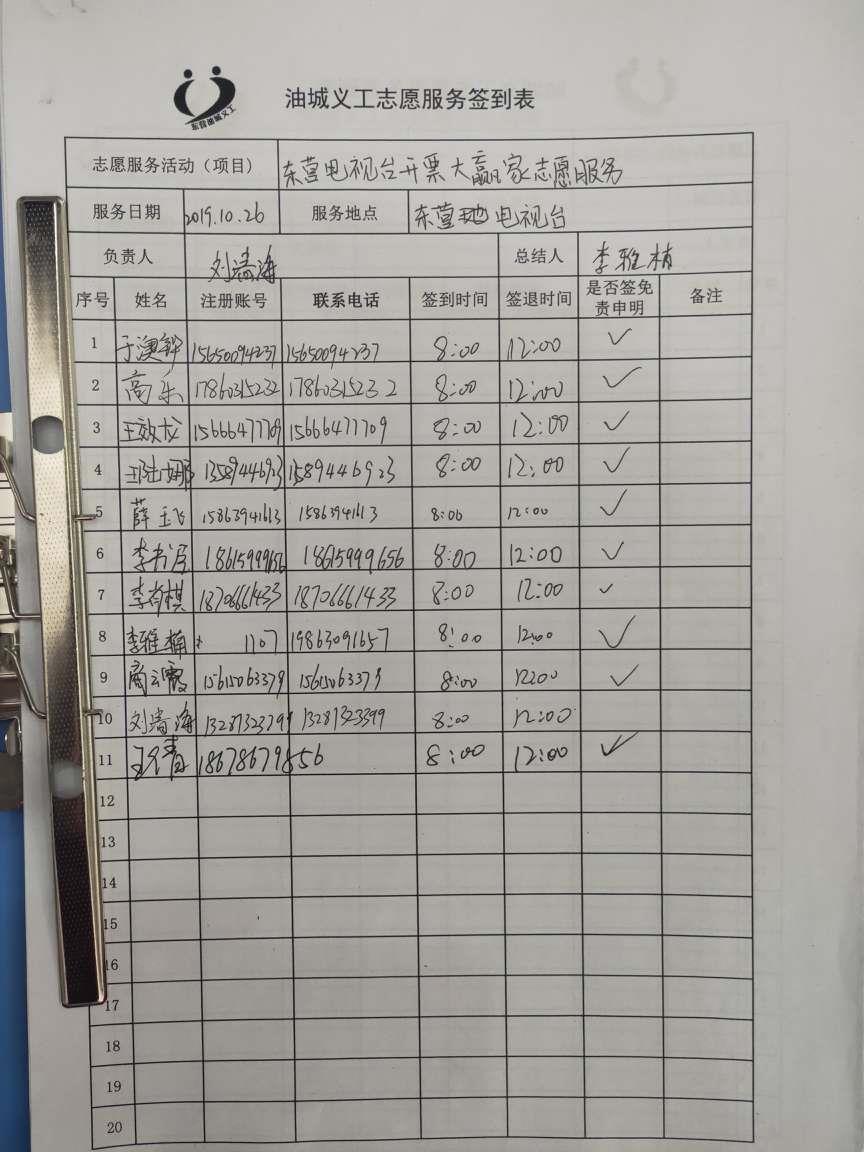 东营油城义工
油城义工志愿服务签到表
志愿服务活动（项目） 东营电视台开票大赢家志愿服务
服务日期 2019.10.26 服务地点 东营 电视台
负责人 刘清海 总结人 李雅楠
序号 姓名 注册账号 联系电话 签到时间 签退时间 是否签免责申明 备注
1 于澳 15650094237 15650094237 8:00 12:00 ✓
2 高乐 17860315232 17860315232 8:00 12:00 ✓
3 王效龙 15666477709 15666477709 8:00 12:00 ✓
4 13589446923 1589446923 8:00 12:00 ✓
5 薛玉飞 15863941613 15863941613 8:00 12:00 ✓
6 李书 18615999656 18615999656 8:00 12:00 ✓
7 李尚棋 18706661433 18706661433 8:00 12:00 ✓
8 李雅楠 1107 19863091657 8:00 12:00 ✓
9 商云霞 15615063379 15615063379 8:00 12:00 ✓
10 刘清海 13287323799 13287323399 8:00 12:00
11 18678679856 8:00 12:00 ✓
12
13
14
15
16
17
18
19
20